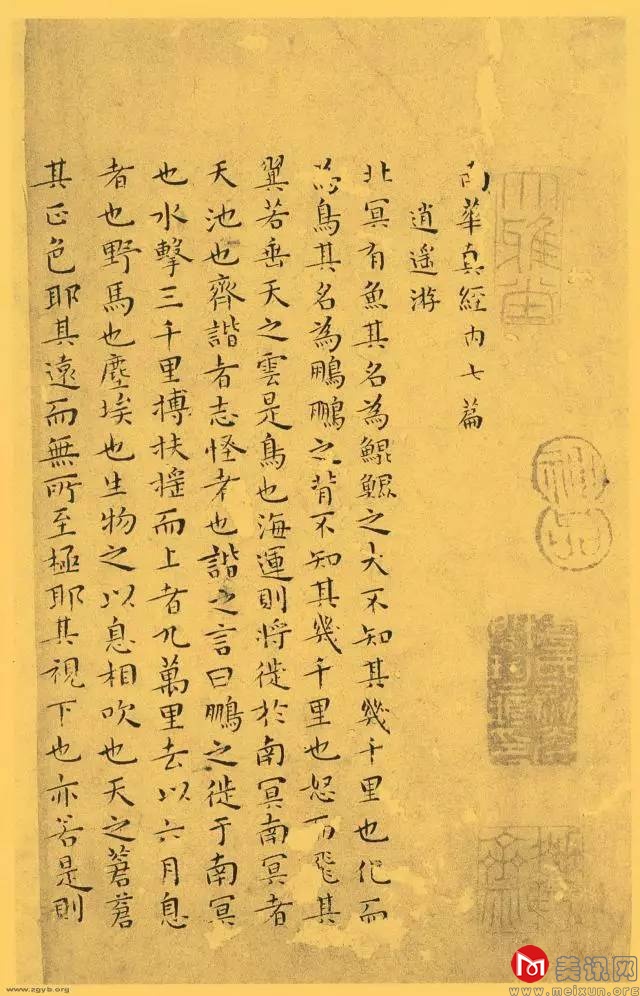 南華真經內七篇
逍遙游
北冥有魚其名為鯤鯤之大不知其幾千里也化而
為鳥其名為鵬鵬之背不知其幾千里也怒而飛其
翼若垂天之雲是鳥也海運則將徙於南冥南冥者
天池也齊諧者志怪者也諧之言曰鵬之徙于南冥
也水擊三千里摶扶搖而上者九萬里去以六月息
者也野馬也塵埃也生物之以息相吹也天之蒼蒼
其正色耶其遠而無所至極耶其視下也亦若是則
神品
www.zgyb.org
美讯网
www.meixun.org